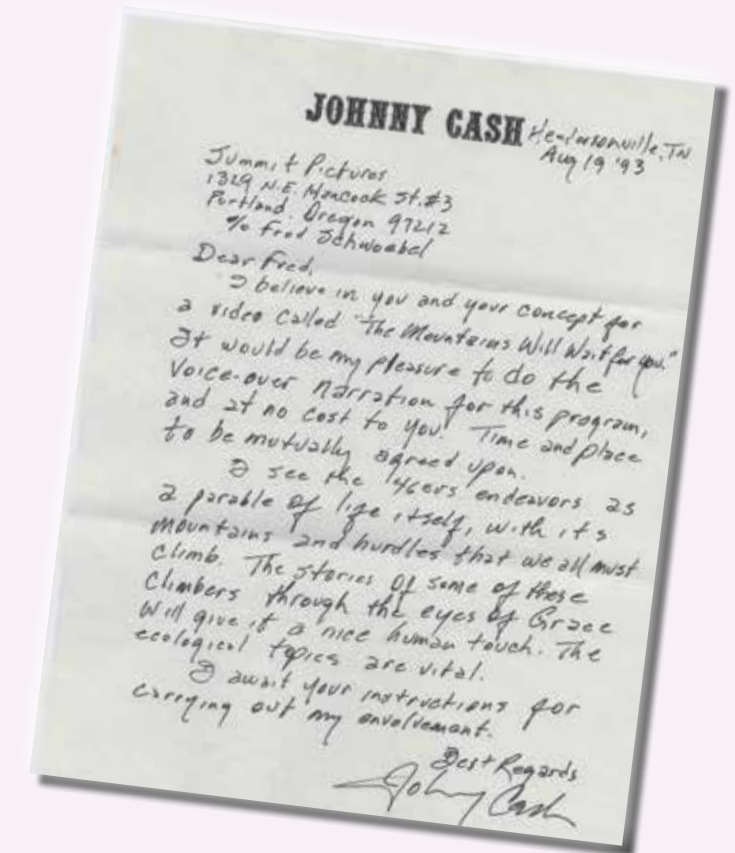 JOHNNY CASH Hendersonville, TN
Aug 19 '93
Summit Pictures
1329 N.E. Hancock St. #3
Portland, Oregon 97212
% Fred Schwoebel
Dear Fred,
I believe in you and your concept for
a video called "The Mountains Will Wait for you."
It would be my pleasure to do the
voice-over narration for this program,
and at no cost to you. Time and place
to be mutually agreed upon.
I see the 46ers endeavors as
a parable of life itself, with its
mountains and hurdles that we all must
climb. The stories of some of these
climbers through the eyes of Grace
will give it a nice human touch. The
ecological topics are vital.
I await your instructions for
carrying out my envolvement.
Best Regards
Johnny Cash